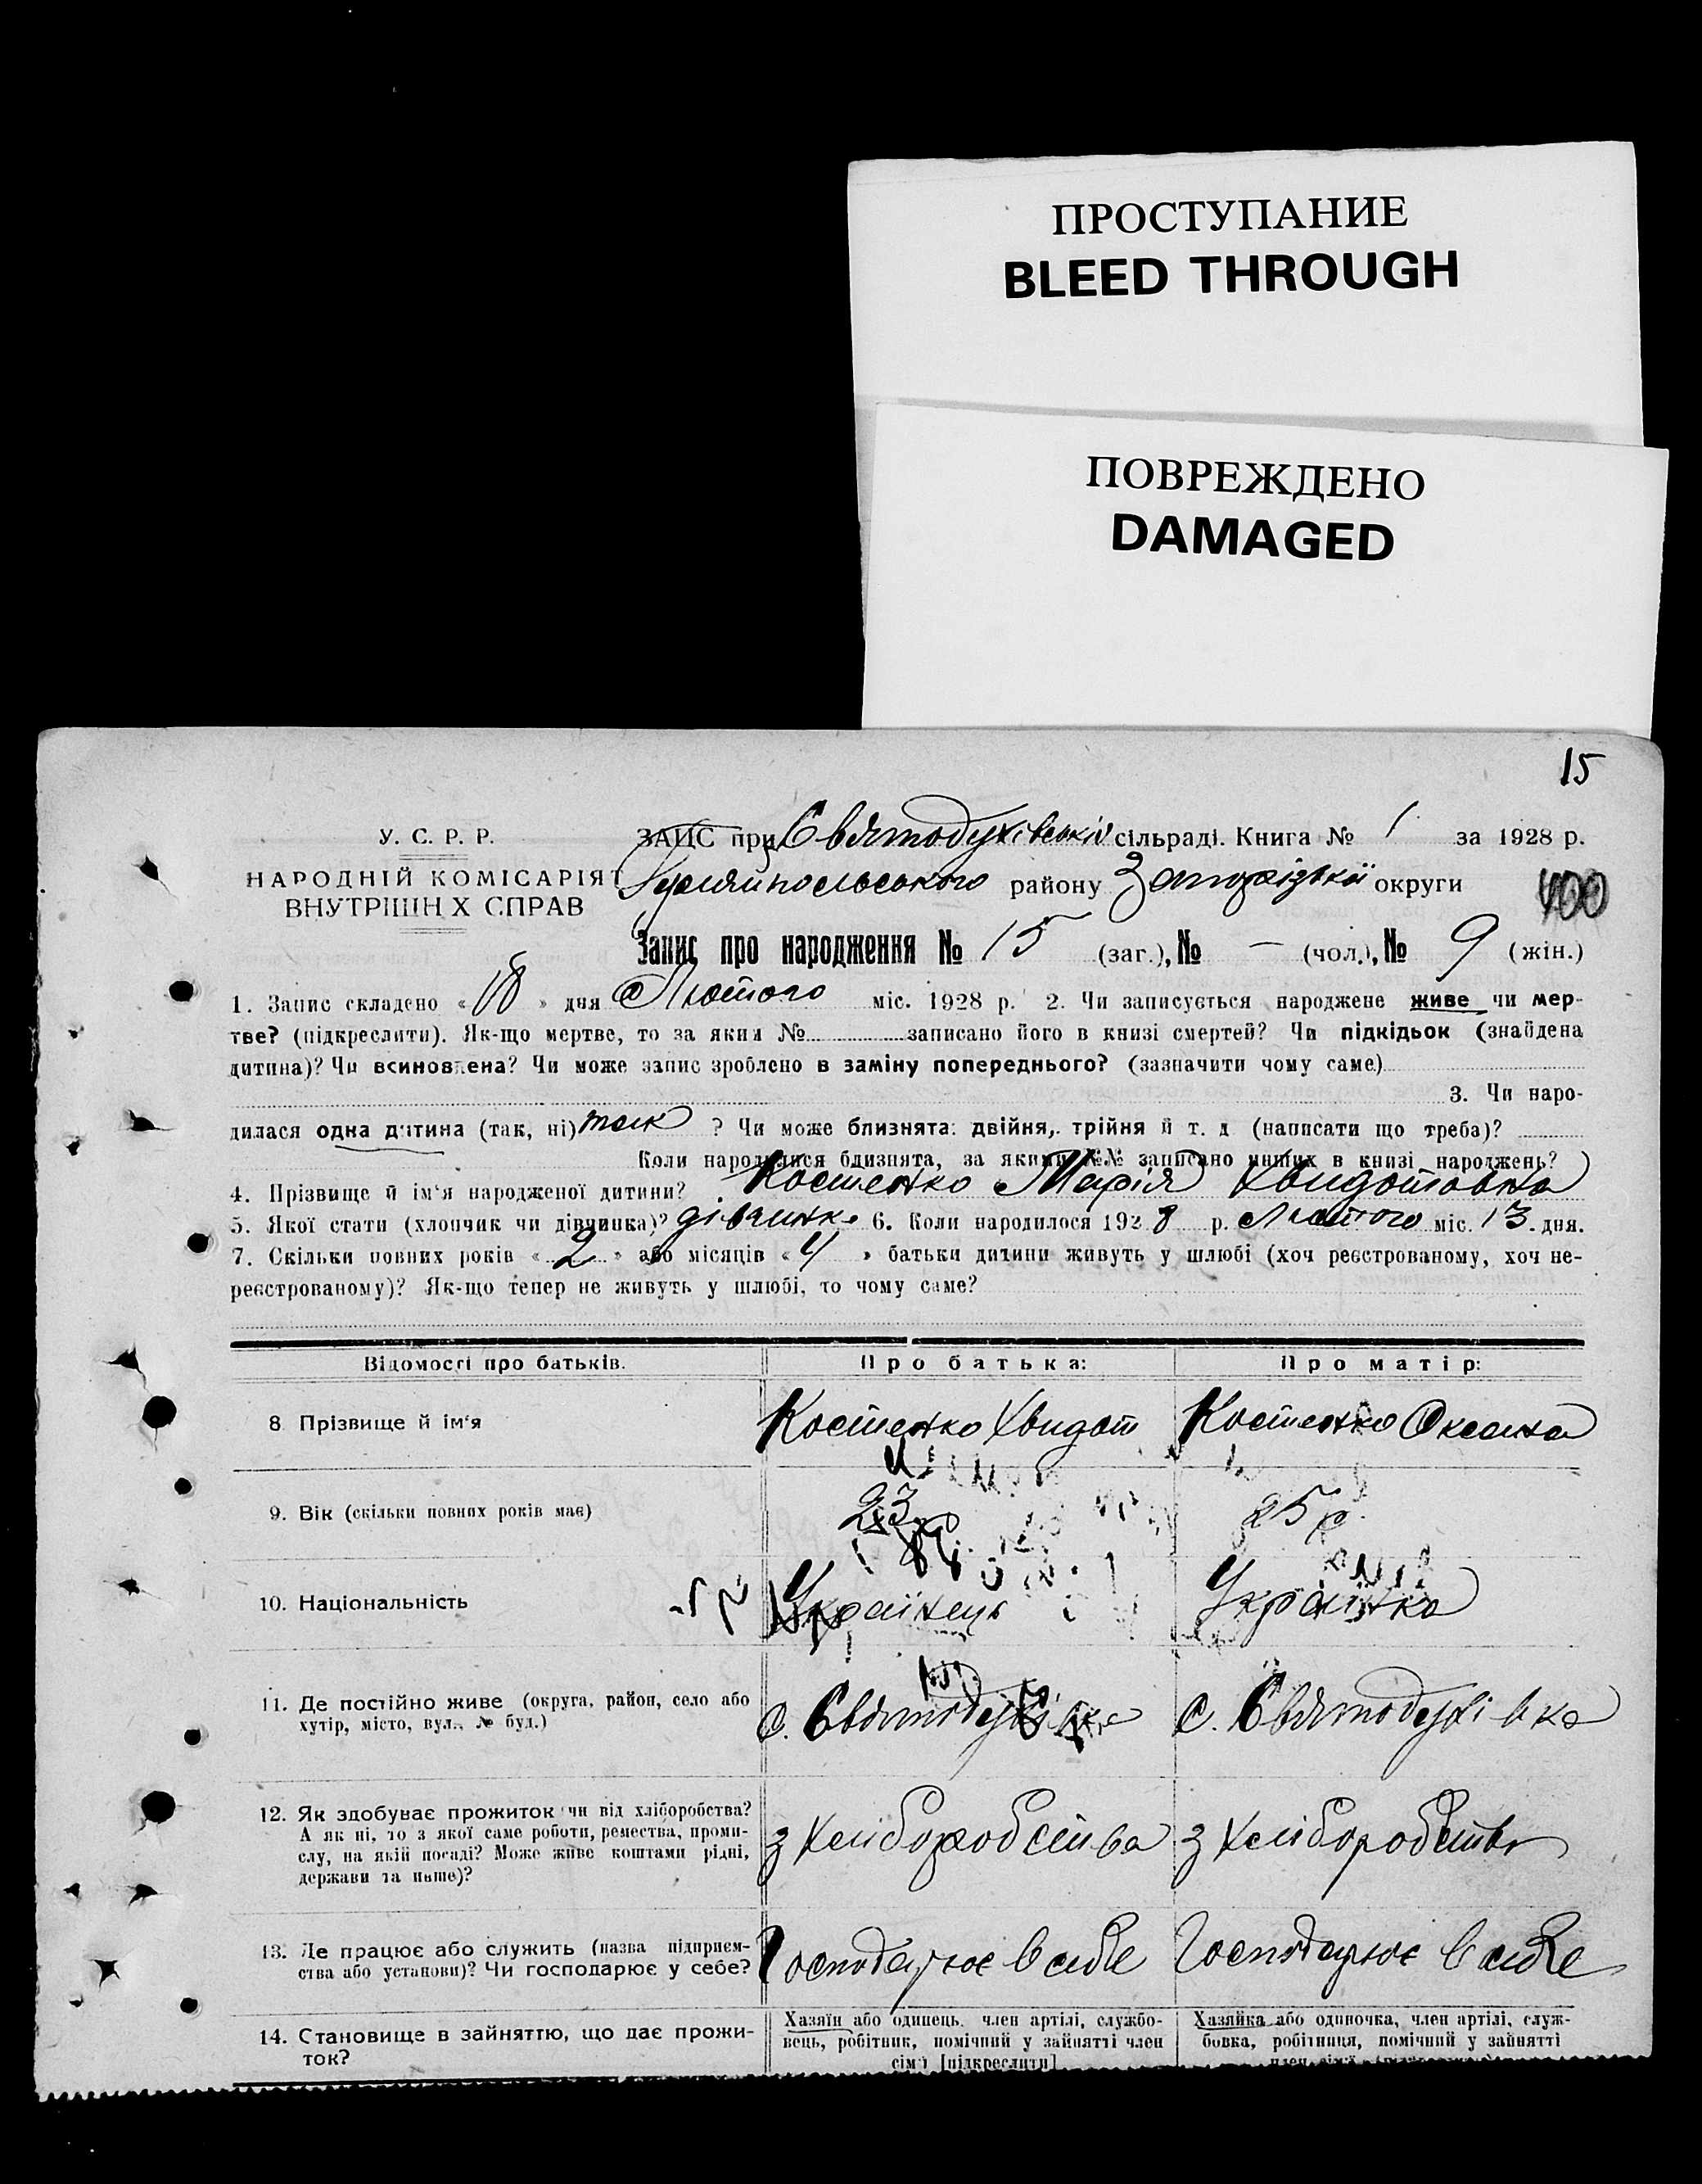 ПРОСТУПАНИЕ
BLEED THROUGH
ПОВРЕЖДЕНО
DAMAGED
15
У. С. Р. Р.
НАРОДНІЙ КОМІСАРІЯТ
ВНУТРІШН Х СПРАВ
ЗАГС при Святодухівській сільраді. Книга № 1 за 1928 р.
Гуляйпольського району Запорізької округи
400
Запис про народження № 15 (заг.), № — (чол.), № 9 (жін.)
1. Запис складено « 18 » дня Лютого міс. 1928 р. 2. Чи записується народжене живе чи мер-
тве? (підкреслити). Як-що мертве, то за яким № записано його в книзі смертей? Чи підкідьок (знайдена
дитина)? Чи всиновлена? Чи може запис зроблено в заміну попереднього? (зазначити чому саме)
3. Чи наро-
дилася одна дитина (так, ні) так ? Чи може близнята: двійня, трійня й т. д (написати що треба)?
Коли народилися близнята, за якими №№ записано инших в книзі народжень?
4. Прізвище й ім'я народженої дитини? Костенко Марія Хвидотовна
5. Якої статі (хлопчик чи дівчинка)? дівчинка 6. Коли народилося 1928 р. Лютого міс. 13 дня.
7. Скільки повних років « 2 » або місяців « 4 » батьки дитини живуть у шлюбі (хоч реєстрованому, хоч не-
реєстрованому)? Як-що тепер не живуть у шлюбі, то чому саме?
Відомості про батьків. Про батька: Про матір:
8 Прізвище й ім'я Костенко Хвидот Костенко Оксана
9. Вік (скільки повних років має) 23 25 р.
10. Національність Українець Українка
11. Де постійно живе (округа, район, село або
хутір, місто, вул., № буд.) с. Святодухівка с. Святодухівка
12. Як здобуває прожиток чи від хліборобства?
А як ні, то з якої саме роботи, ремества, проми-
слу, на якій посаді? Може живе коштами рідні,
держави та инше)? з хліборобства з хліборобства
13. Де працює або служить (назва підприєм-
ства або установи)? Чи господарює у себе? Господарює в себе Господарює в себе
14. Становище в зайняттю, що дає прожи-
ток?
Хазяїн або одинець, член артілі, службо-
вець, робітник, помічний у зайнятті член
сім'ї [підкреслити]
Хазяйка або одиночка, член артілі, служ-
бовка, робітниця, помічний у зайнятті